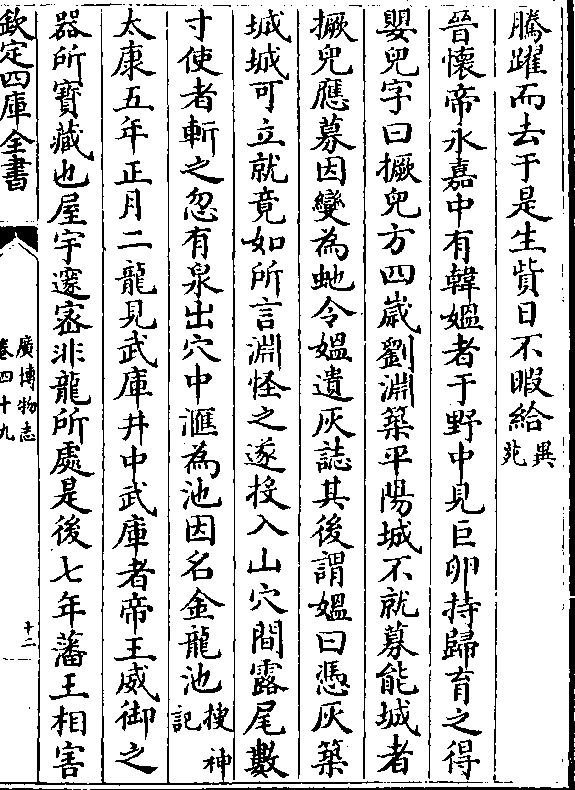 騰躍而去于是生貲日不暇給異苑
晉懷帝永嘉中有韓媼者于野中見巨卵持歸育之得
嬰兒字曰撅兒方四歲劉淵築平陽城不就募能城者
撅兒應募因變為虵令媼遺灰誌其後謂媼曰憑灰築
城城可立就竟如所言淵怪之遂投入山穴間露尾數
寸使者斬之忽有泉出穴中滙為池因名金龍池搜神記
太康五年正月二龍見武庫井中武庫者帝王威御之
器所寶藏也屋宇邃宻非龍所處是後七年藩王相害
欽定四庫全書
廣博物志
卷四十九
十二